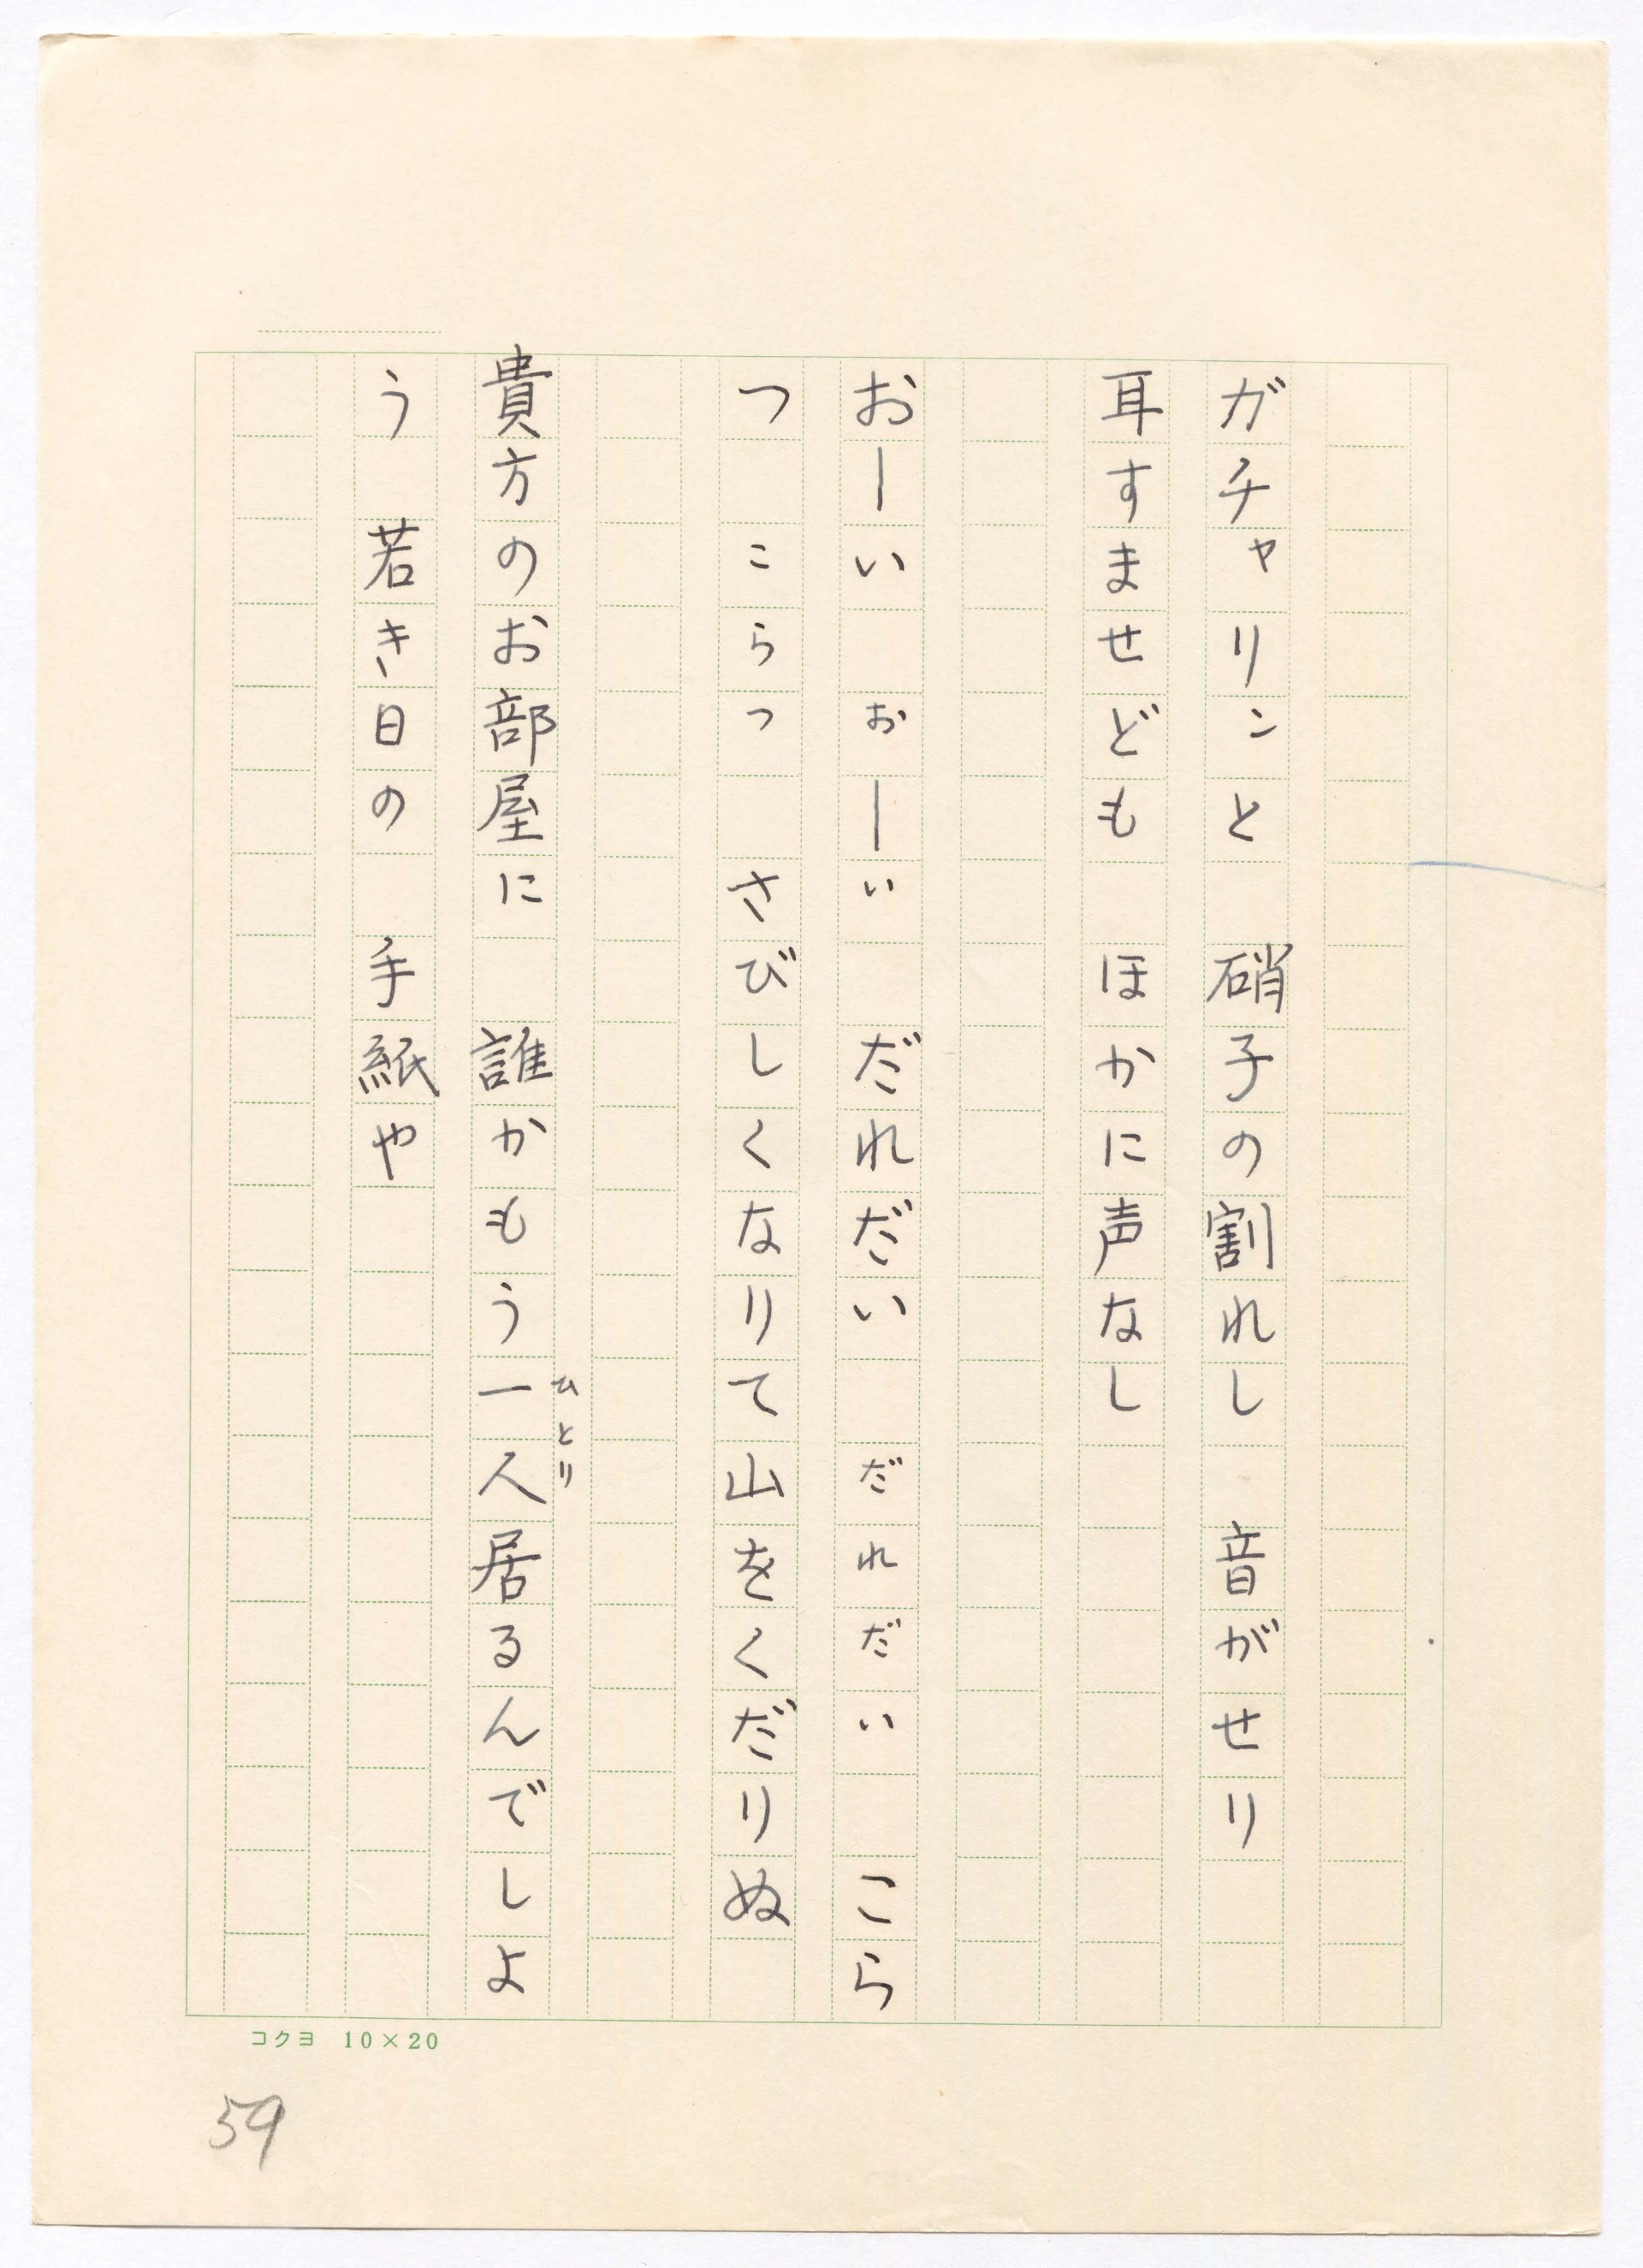 ガチャリンと　硝子の割れし　音がせり
耳すませども　ほかに声なし
おーい　おーい　だれだい　だれだい　こら
つ　こらつ　さびしくなりて山をくだりぬ
貴方のお部屋に　誰かもう一人居るんでしよ
ひとり
う　若き日の　手紙や
コクヨ 10×20
59